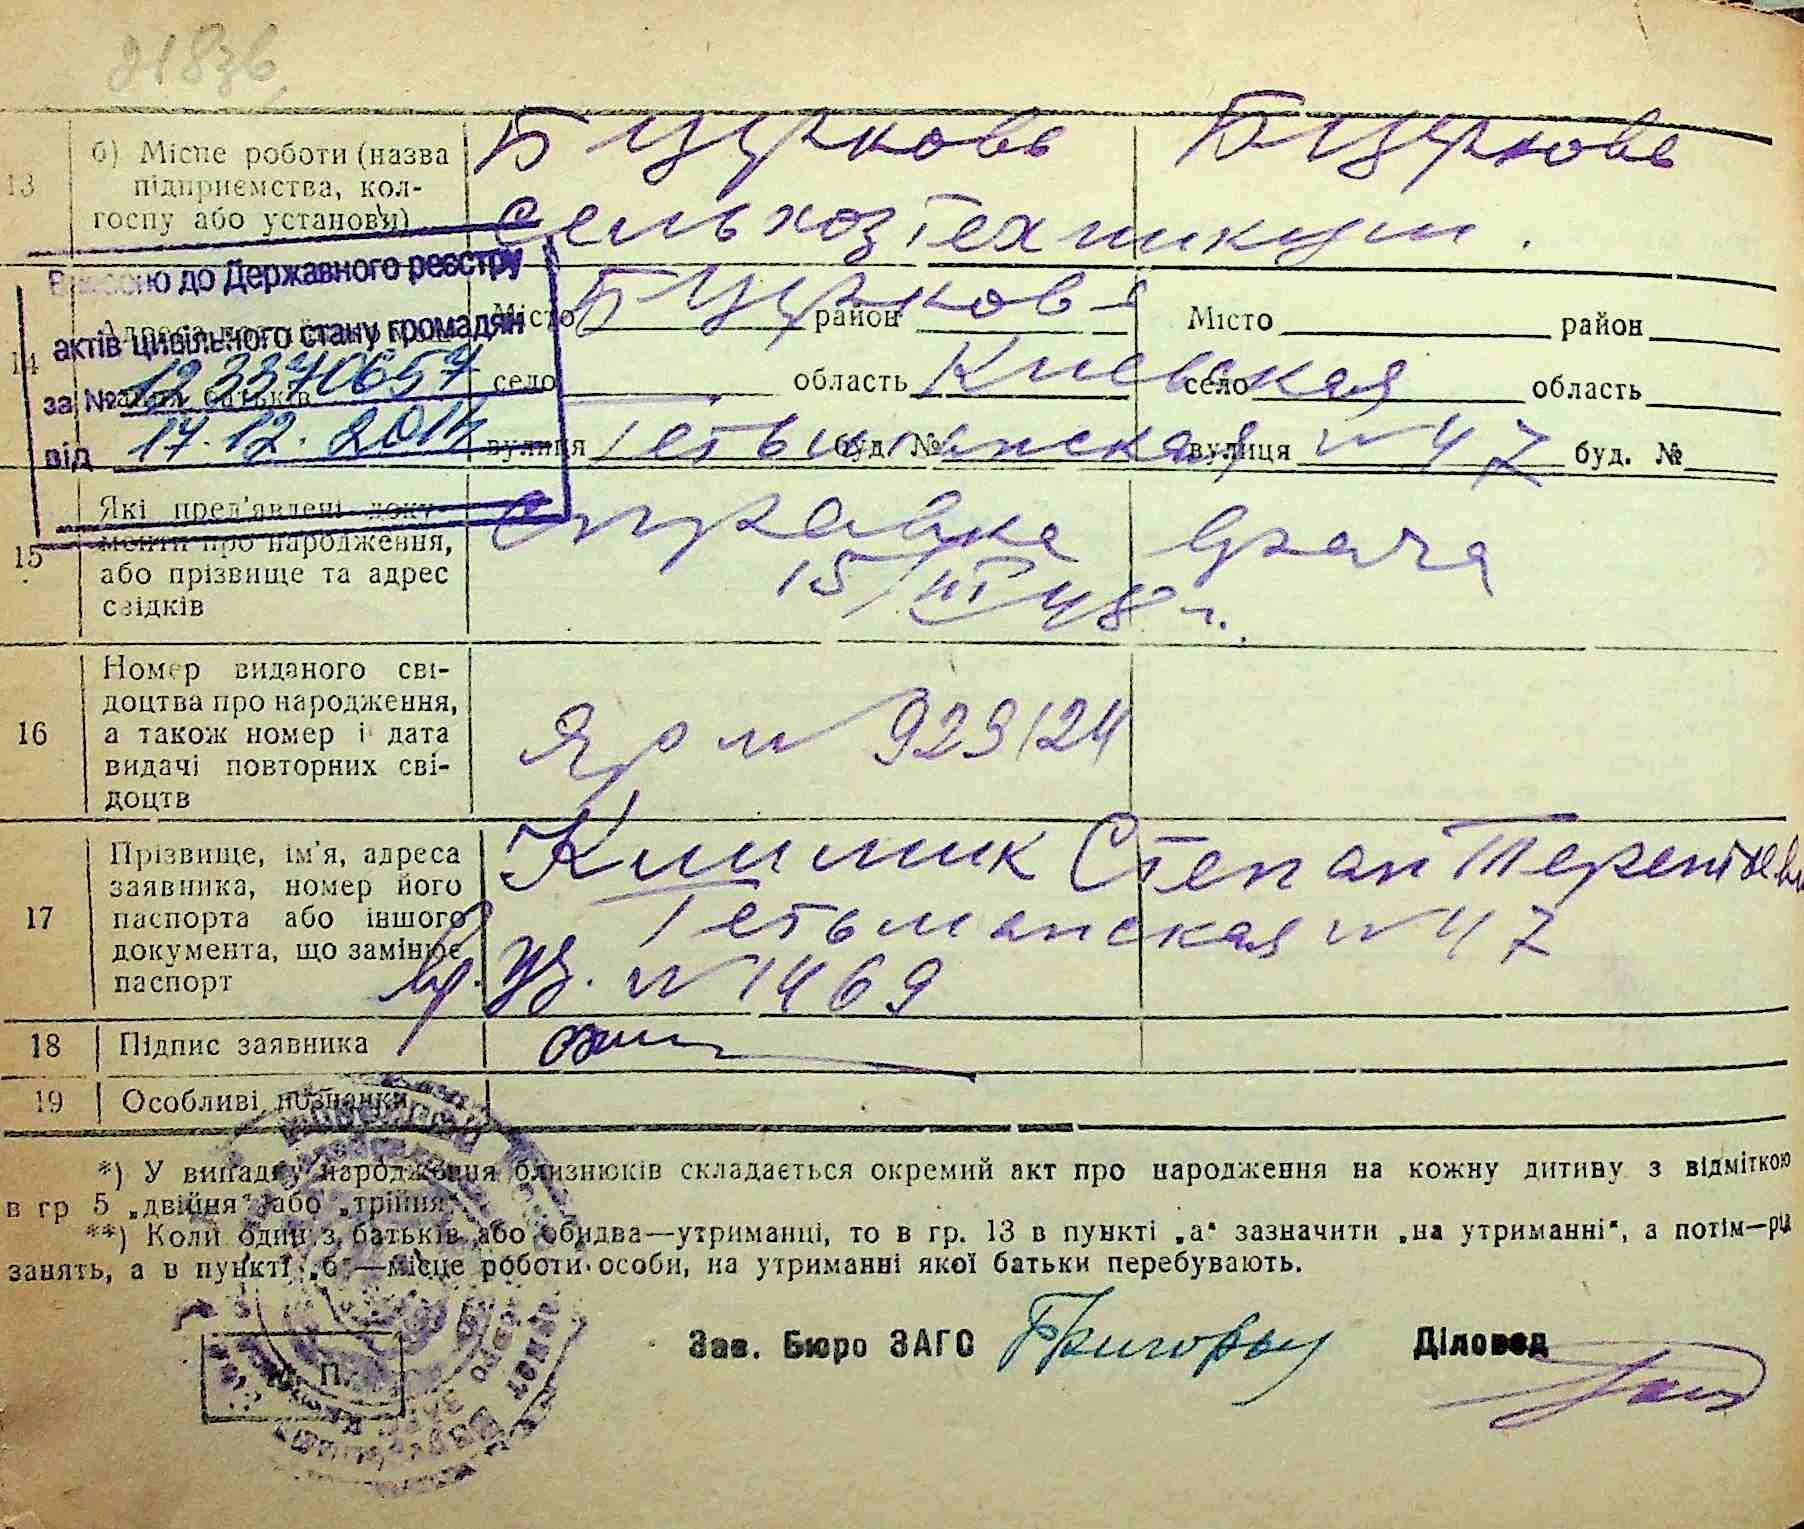 13
б) Місце роботи (назва підприємства, колгоспу або установи)
Б Церковь Б Церковь
сельхозтехникум.
Внесено до Державного реєстру
актів цивільного стану громадян
за № 12337065
від 17.12.2014
14
Місто Б Церковь район
Місто район
село область Киевская
село область
вулиця Гетьманская № 47 буд. №
вулиця буд. №
15
Які пред'явлені документи про народження, або прізвище та адрес свідків
справка врача
15/III 48 г.
16
Номер виданого свідоцтва про народження, а також номер і дата видачі повторних свідоцтв
№ 929124
17
Прізвище, ім'я, адреса заявника, номер його паспорта або іншого документа, що замінює паспорт
Климик Степан Терентьеви
Гетьманская № 47
вр. уд. № 1469
18
Підпис заявника
19
Особливі познанки
*) У випадку народження близнюків складається окремий акт про народження на кожну дитину з відміткою
в гр 5 „двійня" або „трійня"
**) Коли один з батьків або обидва—утриманці, то в гр. 13 в пункті „а" зазначити „на утриманні", а потім—рід
занять, а в пункті „б"—місце роботи особи, на утриманні якої батьки перебувають.
Зав. Бюро ЗАГС
Діловод
М. П.